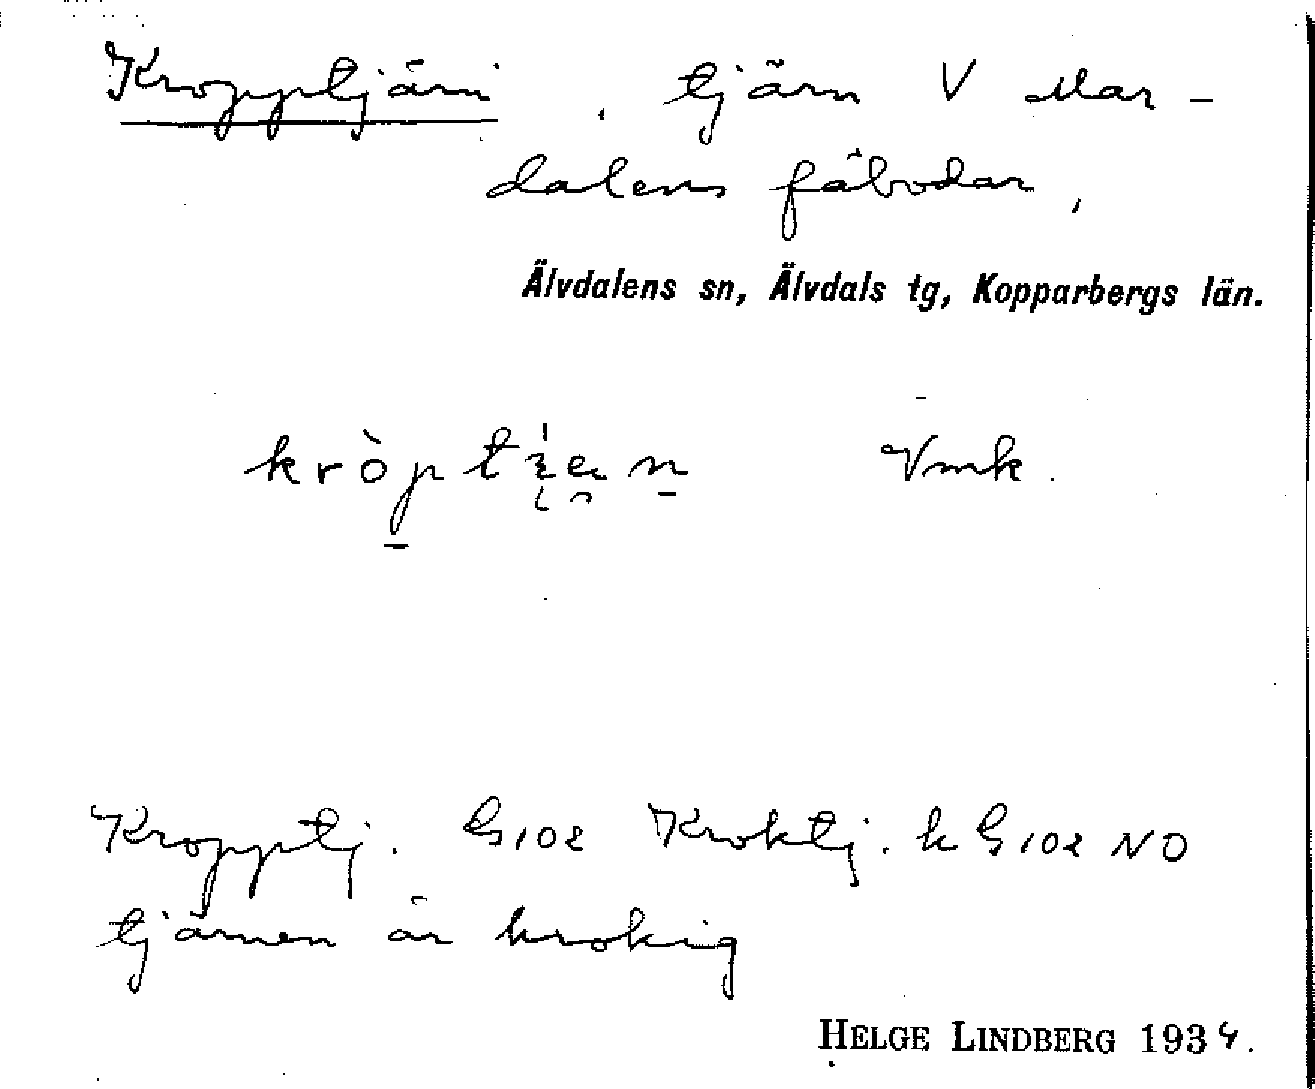 Kropptjärn, tjärn V Mar-
dalens fäbodar,
Älvdalens sn, Älvdals tg, Kopparbergs län.
Vmk.
Kropptj. G102 Kroktj. k G102 NO
tjärnen är krokig
HELGE LINDBERG 1934.